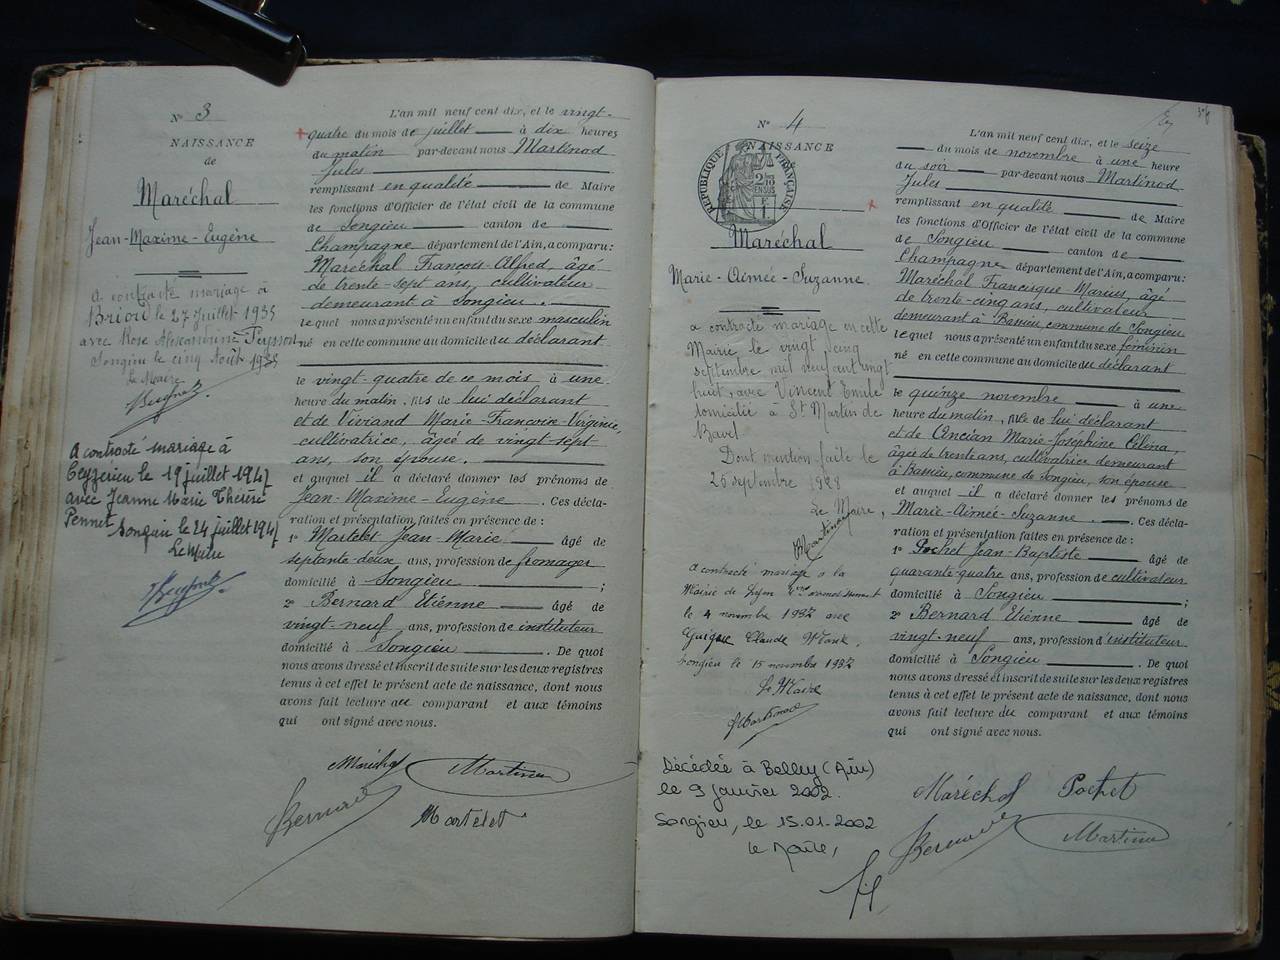 N° 3
NAISSANCE
de
Maréchal
Jean-Maxime-Eugène
a contracté mariage à
Briord le 27 juillet 1935
avec Rose Alexandrine Peysson
Songieu le cinq Août 1935
Le Maire
A contracté mariage à
Ceyzérieu le 19 juillet 1947
avec Jeanne Marie Thérèse
Pennet Songieu le 24 juillet 1947
Le Maire
L'an mil neuf cent dix, et le vingt-
quatre du mois de juillet à dix heures
du matin par-devant nous Martinod
Jules
remplissant en qualité de Maire
les fonctions d'Officier de l'état civil de la commune
de Songieu canton de
Champagne département de l'Ain, a comparu:
Maréchal François-Alfred, âgé
de trente-sept ans, cultivateur
demeurant à Songieu.
lequel nous a présenté un enfant du sexe masculin
né en cette commune au domicile du déclarant
le vingt-quatre de ce mois à une
heure du matin, fils de lui déclarant
et de Viviand Marie-Françoise-Virginie,
cultivatrice, âgée de vingt-sept
ans, son épouse.
et auquel il a déclaré donner les prénoms de
Jean-Maxime-Eugène. Ces décla-
ration et présentation faites en présence de :
1° Martelet Jean-Marie âgé de
septante-deux ans, profession de fromager
domicilié à Songieu ;
2° Bernard Etienne âgé de
vingt-neuf ans, profession de instituteur
domicilié à Songieu. De quoi
nous avons dressé et inscrit de suite sur les deux registres
tenus à cet effet le présent acte de naissance, dont nous
avons fait lecture au comparant et aux témoins
qui ont signé avec nous.
Maréchal Martinod
Bernard Martelet
N° 4
NAISSANCE
RÉPUBLIQUE FRANÇAISE
Maréchal
Marie-Aimée-Suzanne
a contracté mariage en cette
Mairie le vingt cinq
septembre mil neuf cent vingt
huit, avec Vincent Emile
domicilié à St Martin de
Bavel
Dont mention faite le
26 septembre 1928
Le Maire,
Martinod
A contracté mariage à la
Mairie de Lyon arrondissement
le 4 novembre 1937 avec
Guigue Claude
Songieu le 15 novembre 1937
Le Maire
Martinod
Décédée à Belley (Ain)
le 9 janvier 2002.
Songieu, le 15.01-2002
Le Maire,
L'an mil neuf cent dix, et le seize
du mois de novembre à une heure
du soir par-devant nous Martinod
Jules
remplissant en qualité de Maire
les fonctions d'Officier de l'état civil de la commune
de Songieu canton de
Champagne département de l'Ain, a comparu:
Maréchal Francisque-Marius, âgé
de trente-cinq ans, cultivateur
demeurant à Bassieu commune de Songieu
lequel nous a présenté un enfant du sexe féminin
né en cette commune au domicile du déclarant
le quinze novembre à une
heure du matin, fille de lui déclarant
et de Ancian Marie-Joséphine Célina,
âgée de trente ans, cultivatrice demeurant
à Bassieu, commune de Songieu, son épouse
et auquel il a déclaré donner les prénoms de
Marie-Aimée-Suzanne. Ces décla-
ration et présentation faites en présence de :
1° Pochet Jean-Baptiste âgé de
quarante-quatre ans, profession de cultivateur
domicilié à Songieu ;
2° Bernard Etienne âgé de
vingt-neuf ans, profession d'instituteur
domicilié à Songieu. De quoi
nous avons dressé et inscrit de suite sur les deux registres
tenus à cet effet le présent acte de naissance, dont nous
avons fait lecture au comparant et aux témoins
qui ont signé avec nous.
Maréchal Pochet
Bernard Martinod